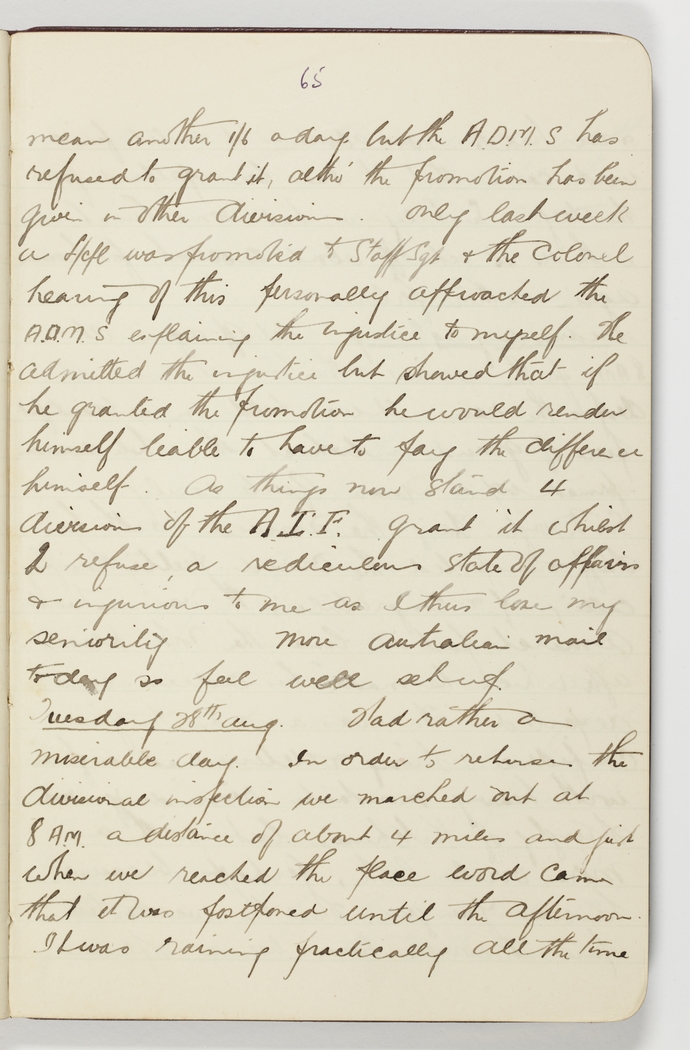 65
mean another 1/6 a day but the A.D.M.S has
refused to grant it, altho' the promotion has been
given in other divisions. Only last week
a L/Cpl was promoted to Staff Sgt & the Colonel
hearing of this personally approached the
A.D.M.S explaining the injustice to myself. He
admitted the injustice but showed that if
he granted the promotion he would render
himself liable to have to pay the difference
himself. As things now stand 4
divisions of the A.I.F. grant it whilst
2 refuse, a rediculous state of affairs
& injurious to me as I thus lose my
seniority More Australian mail
today so feel well set up.
Tuesday 28th Aug. Had rather a
miserable day. In order to rehearse the
divisional inspection we marched out at
8 A.M. a distance of about 4 miles and just
when we reached the place word came
that it was postponed until the afternoon.
It was raining practically all the time